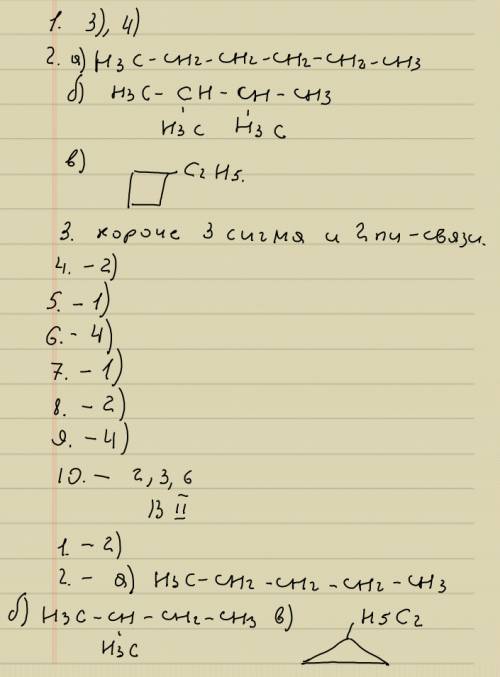 1. 3), 4)
2. а) H3C-CH2-CH2-CH2-CH2-CH3
б) H3C-CH-CH-CH3
H3C H3C
в) C2H5.
3. короче 3 сигмя и 2 пи-связи.
4. - 2)
5. - 1)
6. - 4)
7. - 1)
8. - 2)
9. - 4)
10. - 2, 3, 6
В II
1. - 2)
2. - а) H3C-CH2-CH2-CH2-CH3
б) H3C-CH-CH2-CH3 в) H5C2
H3C